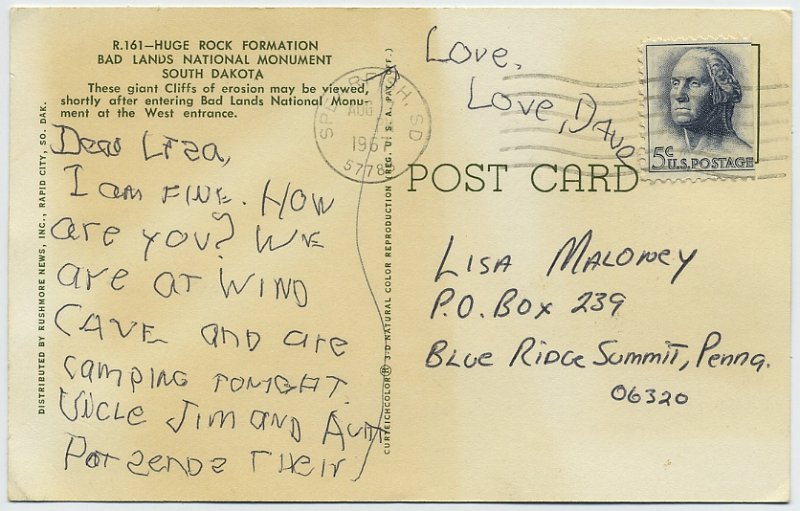 R.161—HUGE ROCK FORMATION
BAD LANDS NATIONAL MONUMENT
SOUTH DAKOTA
These giant Cliffs of erosion may be viewed,
shortly after entering Bad Lands National Monu-
ment at the West entrance.
Dear Liza,
I am FINE. HOW
are you? WE
are at WIND
CAVE and are
camping TONIGHT.
Uncle Jim AND Aunt
Pat sends THEIR
Love,
Love, Dave
DISTRIBUTED BY RUSHMORE NEWS, INC., RAPID CITY, SO. DAK.
CURTEICHCOLOR® 3-D NATURAL COLOR REPRODUCTION (REG. U. S. A. PAT. OFF.)
SPEARFISH, SD
AUG
196
5778
5¢ U.S. POSTAGE
POST CARD
LISA MALONEY
P.O. BOX 239
BLUE RIDGE SUMMIT, PENNA.
06320